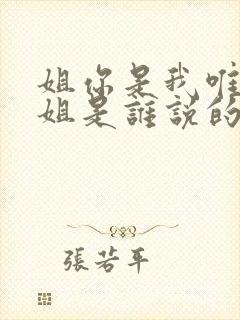 姐你是我唯
姐是誰説的
張若平